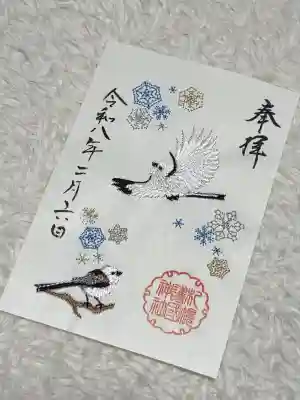 奉拝
令和八年二月六日
神社